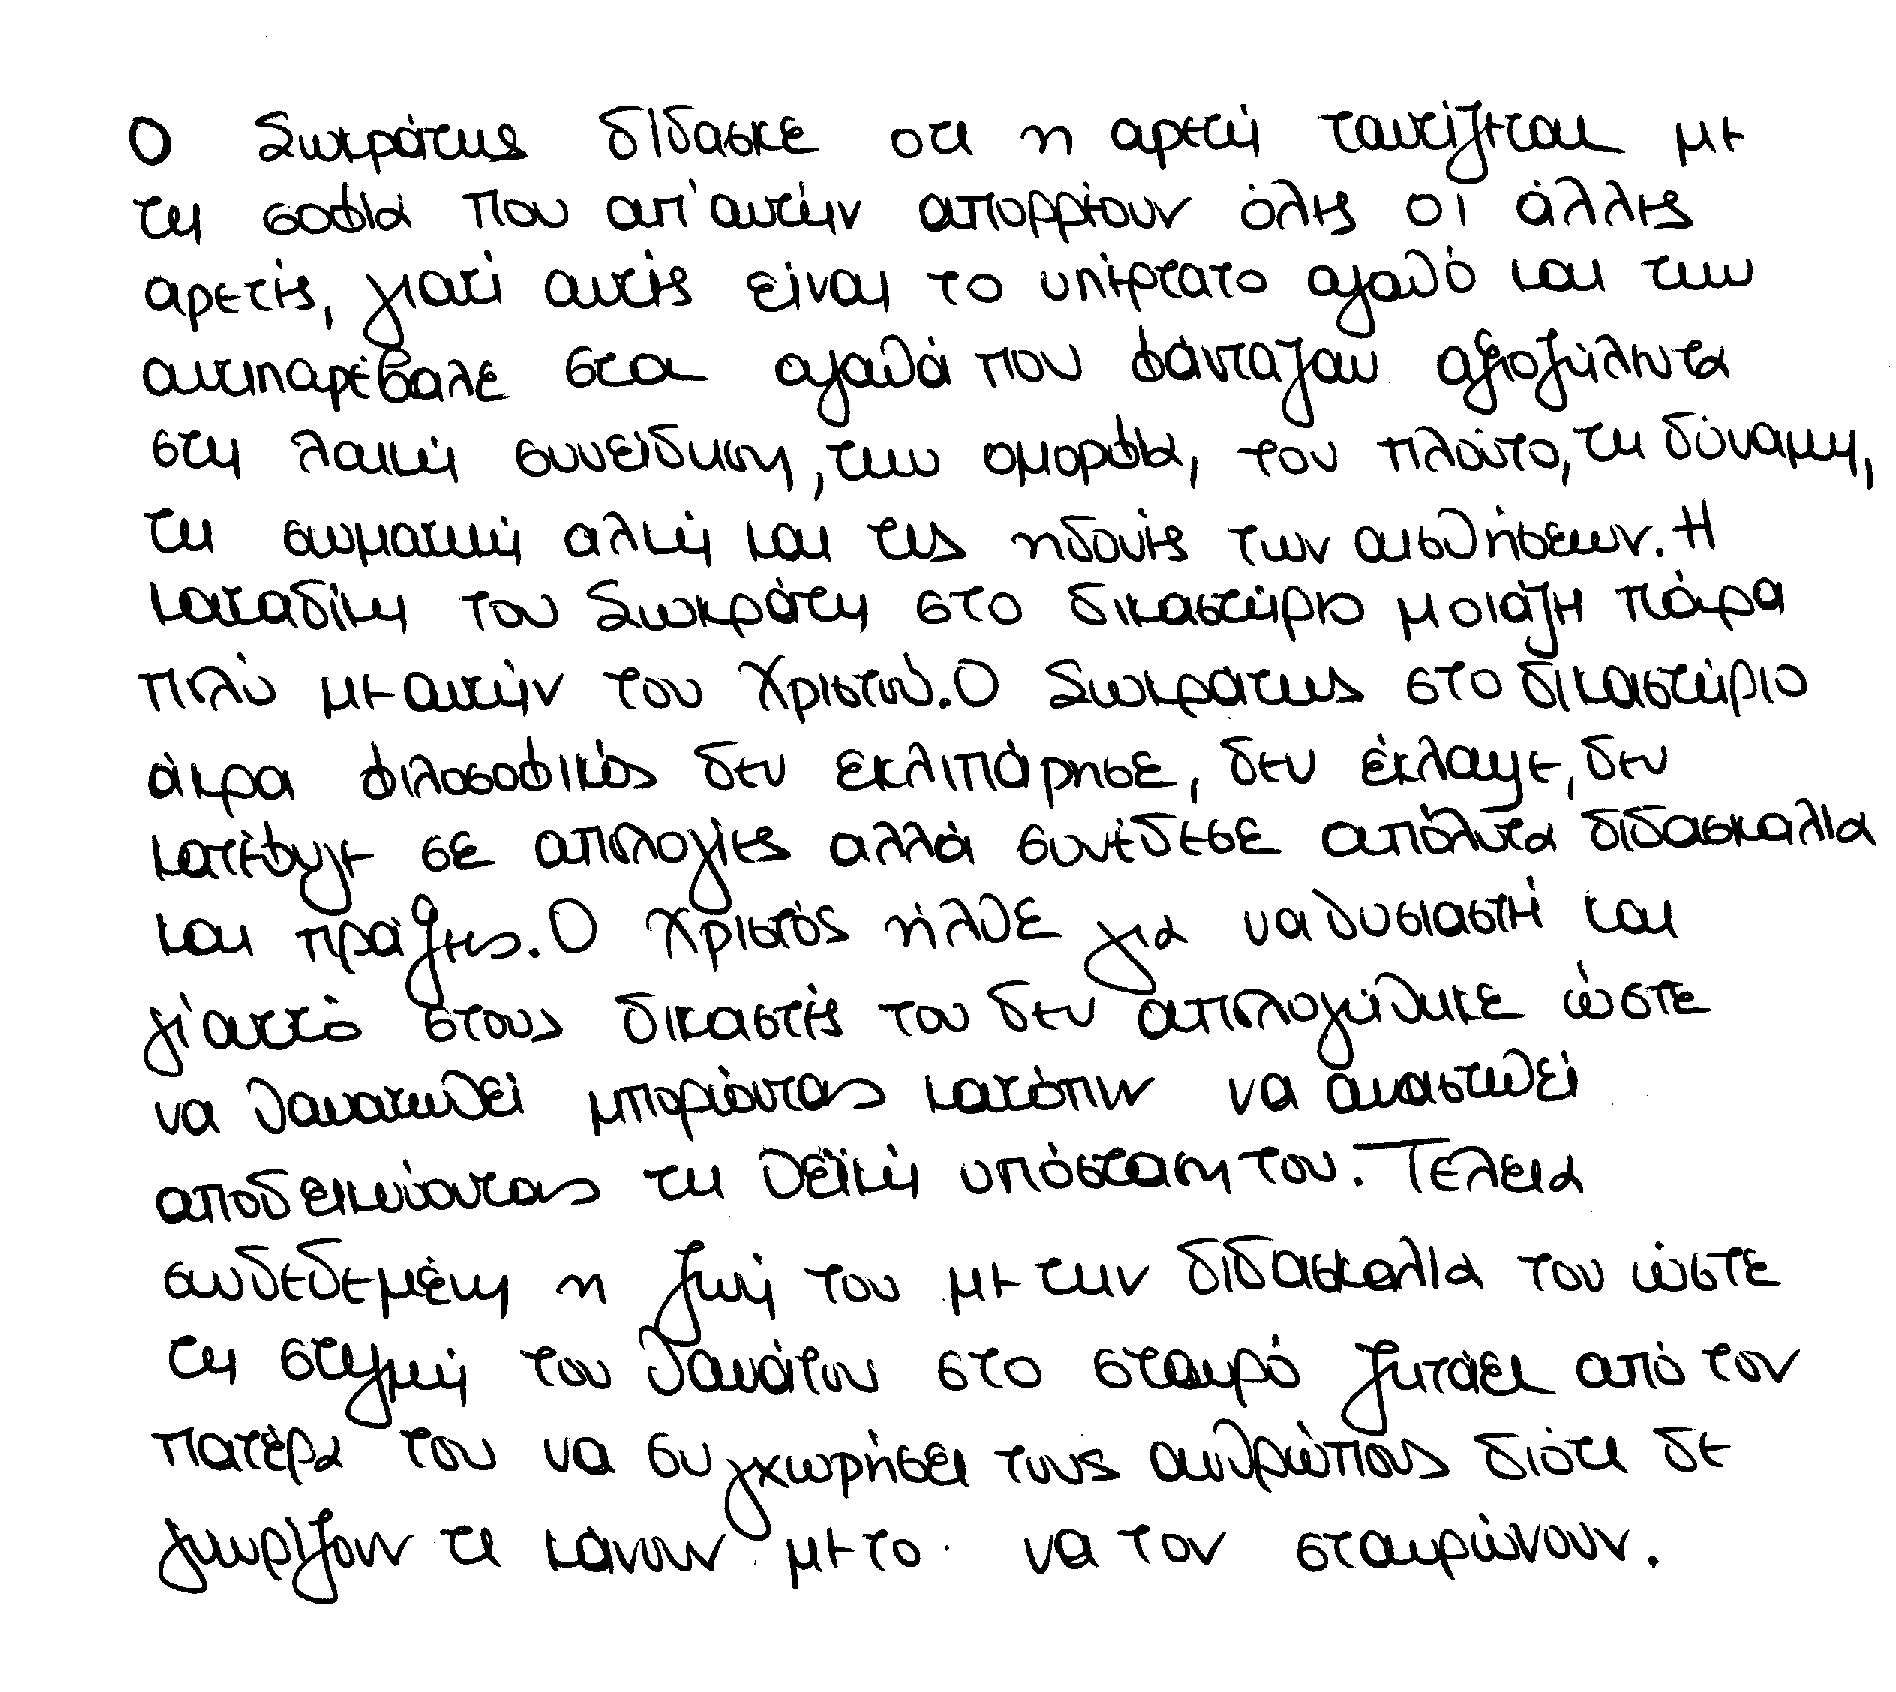 Ο Σωκράτης δίδασκε οτι η αρετή ταυτίζεται με
τη σοφία που απ'αυτήν απορρέουν όλες οι άλλες
αρετές, γιατί αυτές είναι το υπέρτατο αγαθό και την
αντιπαρέβαλε στα αγαθά που φάνταζαν αξιοζήλητα
στη λαική συνείδηση, την ομορφιά, τον πλούτο, τη δύναμη,
τη σωματική αλκή και τις ηδονές των αισθήσεων. Η
καταδίκη του Σωκράτη στο δικαστήριο μοιάζει πάρα
πολύ με αυτήν του Χριστού. Ο Σωκράτης στο δικαιστήριο
άκρα φιλοσοφικός δεν εκλιπάρησε, δεν έκλαψε, δεν
κατέφυγε σε απολογίες αλλά συνέδεσε απόλυτα διδασκαλία
και πράξεις. Ο Χριστός ήλθε για να θυσιαστεί και
γι'αυτό στους δικαστές του δεν απολογήθηκε ώστε
να θανατωθεί μπορώντας κατόπιν να αναστηθεί
αποδεικνύοντας τη θεϊκή υπόσταση του. Τελεια
συνδεδεμένη η ζωή του με την διδασκαλία του ώστε
τη στιγμή του θανάτου στο σταυρό ζητάει από τον
πατέρα του να συγχωρήσει τους ανθρώπους διότι δε
γνωρίζουν τι κάνουν με το να τον σταυρώνουν.